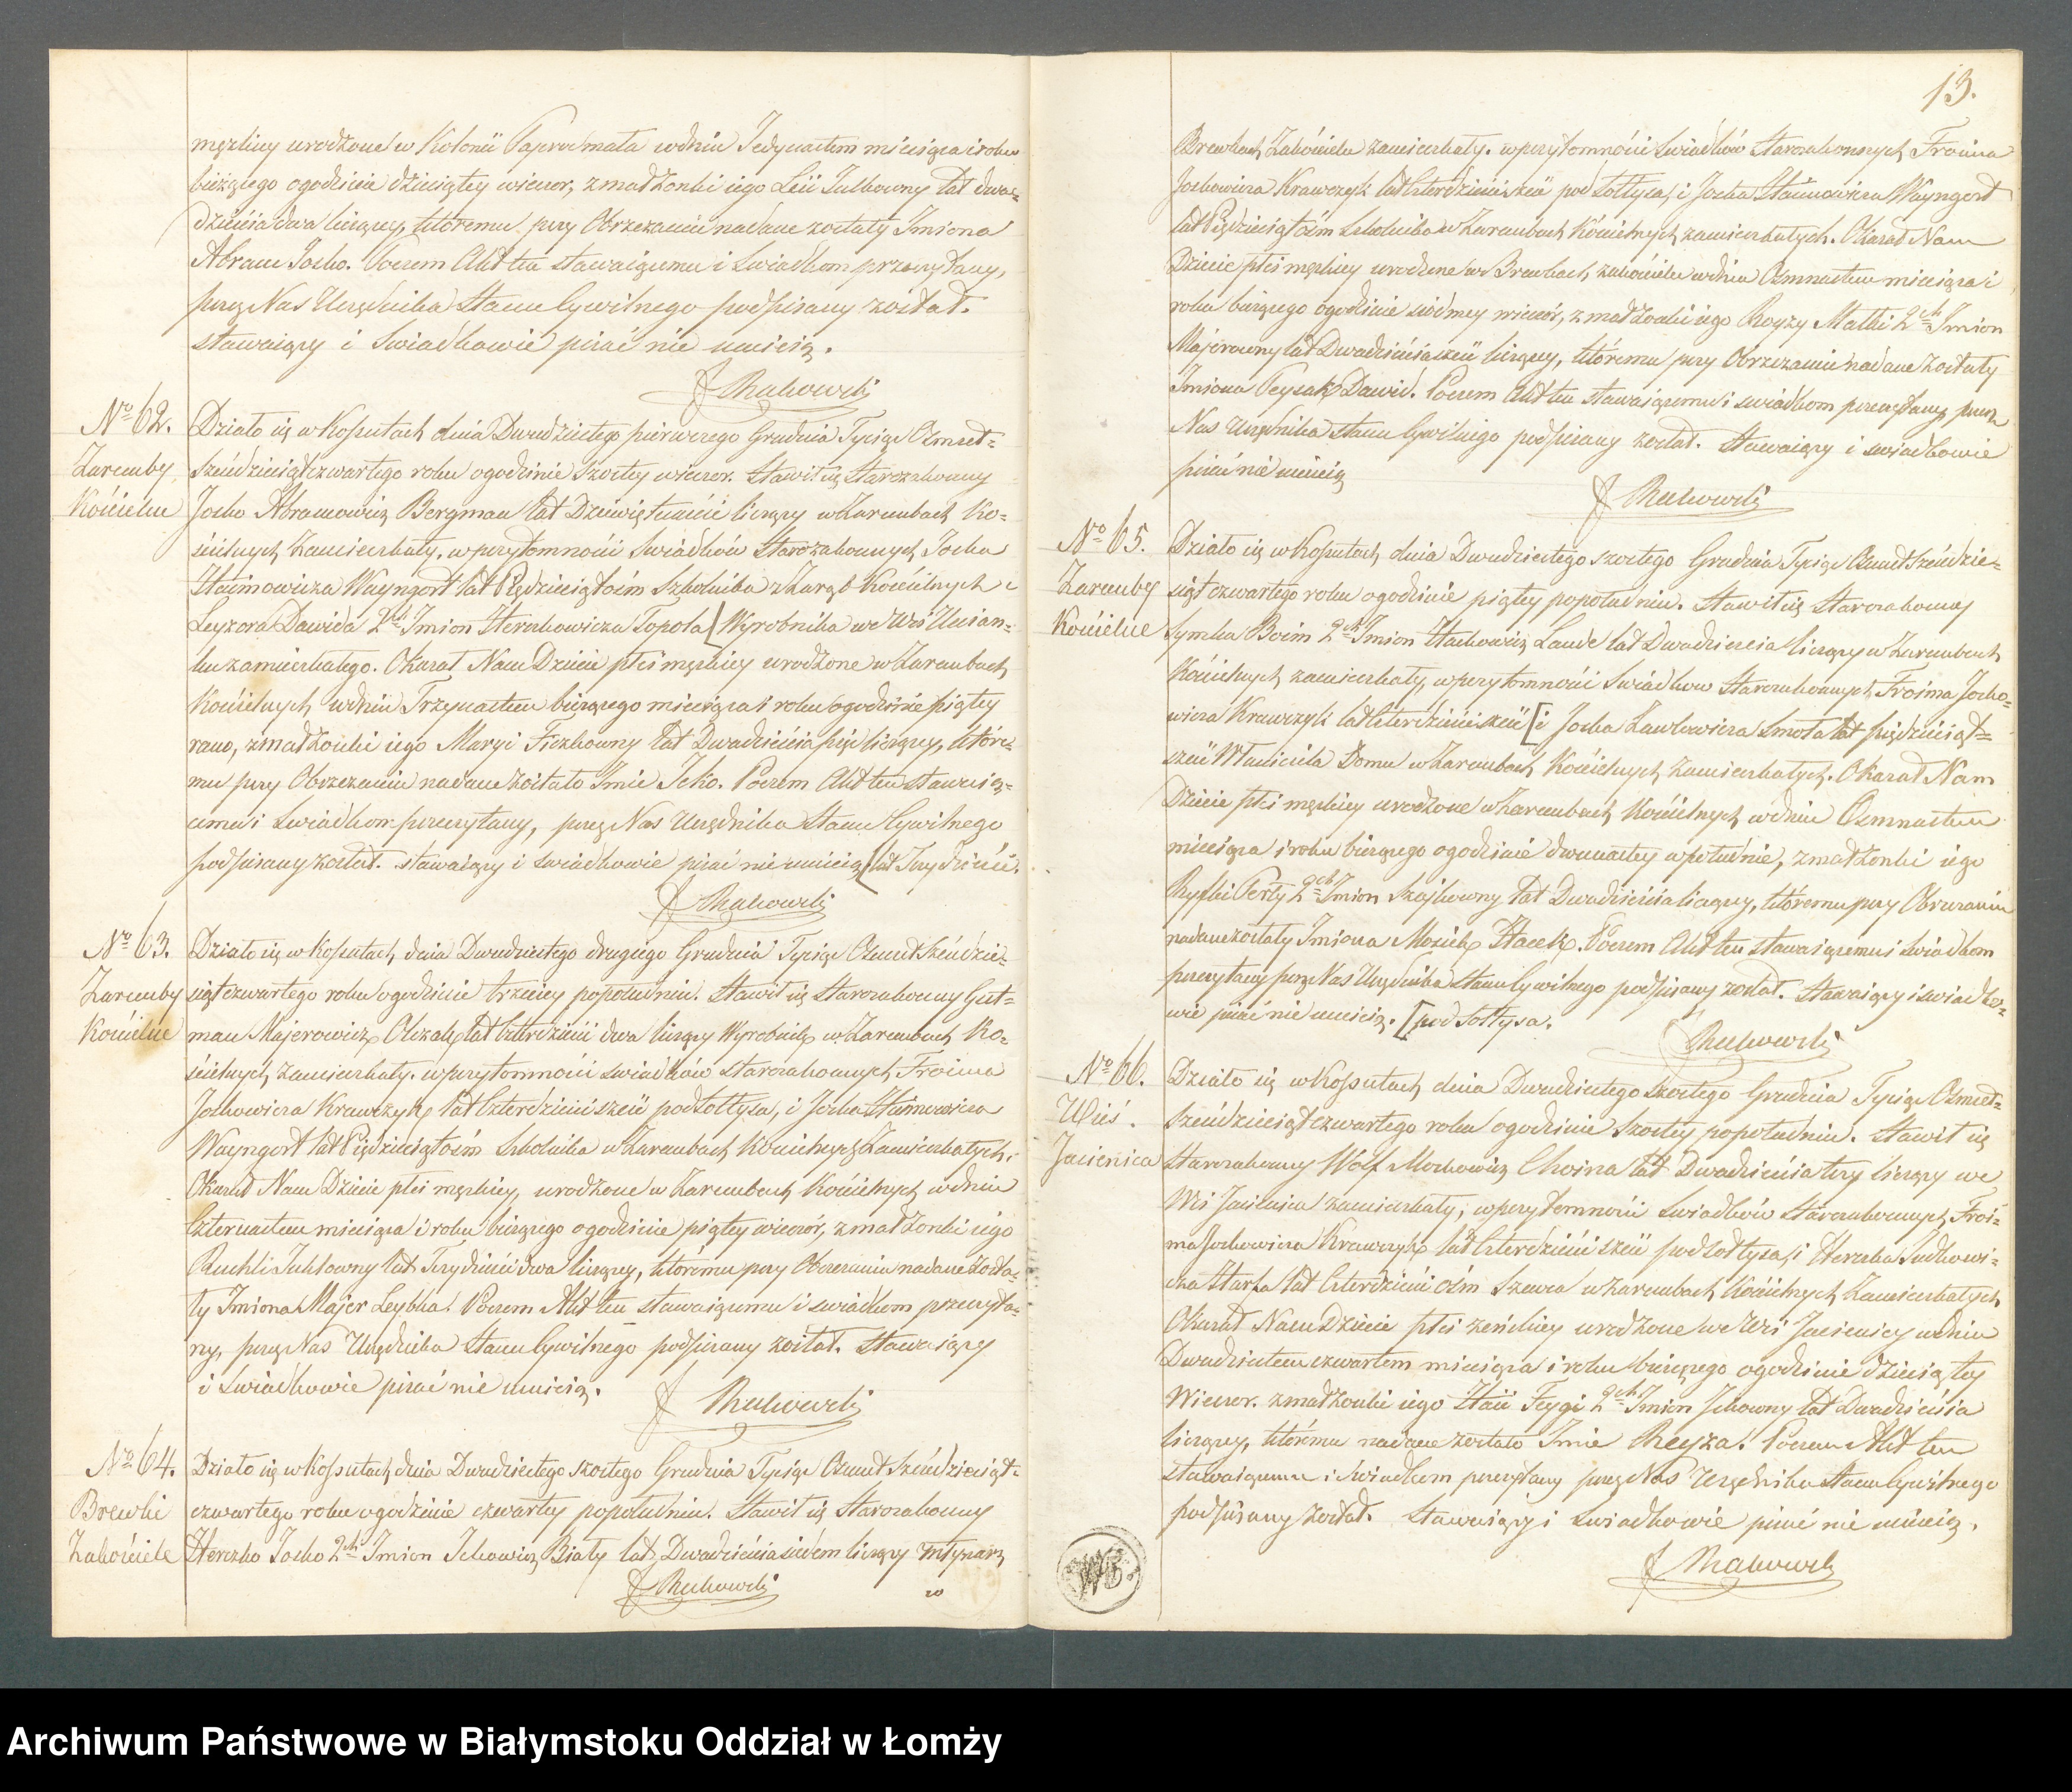 męzkiey urodzone w Kolonii Paproc mała w dniu Jedynastem miesiąca i roku
bieżącego o godzinie dziesiątey wieczor, z małżonki iego Leii Julkowny lat dwa=
dzieścia dwa liczącey, któremu przy Obrzezaniu nadane zostały Imiona
Abram Josko. Poczem Akt ten stawaiącemu i Swiadkom przeczytany,
przez Nas Urzędnika Stanu Cywilnego podpisany został.
stawaiący i Swiadkowie pisać nie umieią.
No 62.
Zaremby
Kościelne
Działo się w Kossutach dnia Dwudziestego pierwszego Grudnia Tysiąc Ośmset=
Sześćdziesiąt czwartego roku o godzinie Szostey wieczor. Stawił się Starozakonny
Josko Abramowicz Bergman lat Dziewiętnaście liczący w Zarembach Ko=
ścielnych Zamieszkały, w przytomności Swiadków Starozakonnych Joska
Wayngort lat Pięćdziesiąt ośm Szkolnika z Zaręb Kościelnych i
Leyzora Dawida 2ch Imion Herszkowicza Topola [Wyrobnika we Wsi
zamieszkałego. Okazał Nam Dziecie płci męzkiey urodzone w Zarembach
Kościelnych w dniu Trzynastem bieżącego miesiąca i roku o godzinie piątey
rano, z małżonki iego Maryi Fiszkowny lat Dwadzieścia pięć liczącey, które=
mu przy Obrzezaniu nadane zostało Imie Icko. Poczem Akt ten stawaią=
cemu i Swiadkom przeczytany, przez Nas Urzędnika Stanu Cywilnego
podpisany został. stawaiący i swiadkowie pisać nie umieią [lat Trzydzieści.
No 63.
Zaremby
Kościelne
Działo się w Kossutach dnia Dwudziestego drugiego Grudnia Tysiąc Ośmset Sześćdzie=
siąt czwartego roku o godzinie trzeciey popołudniu. Stawił się Starozakonny Gut=
man Majerowicz lat Czterdzieści dwa liczący Wyrobnik w Zarembach Ko=
ścielnych Zamieszkały. w przytomności swiadków starozakonnych Froima
Joskowicza Krawczyk lat Czterdzieści sześć podsołtysa, i Joska
Wayngort lat Pięćdziesiąt ośm Szkolnika w Zarembach Kościelnych Zamieszkałych.
Okazał Nam Dziecie płci męzkiey, urodzone w Zarembach Kościelnych w dniu
Czternastem miesiąca i roku bieżącego o godzinie piątey wieczór, z małżonki iego
Ruchli Julkowny lat Trzydzieści dwa liczącey, któremu przy Obrzezaniu nadane zosta=
ły Imiona Majer Leybka. Poczem Akt ten stawaiącemu i swiadkom przeczyta=
ny, przez Nas Urzędnika Stanu Cywilnego podpisany został. Stawaiący
i Swiadkowie pisać nie umieią.
No 64.
Brewki
Zakościele
Działo się w Kossutach dnia Dwudziestego szostego Grudnia Tysiąc Ośmset Sześćdziesiąt=
czwartego roku o godzinie czwartey popołudniu. Stawił się Starozakonny
Herszko Josko 2ch Imion Ickowicz Biały lat Dwadzieścia siedem liczący młynarz
w
13.
Brewkach Zakościelu zamieszkały. w przytomności Swiadków Starozakonnych Froima
Joskowicza Krawczyk lat Czterdzieści sześć podsołtysa, i Joska Wayngort
lat Pięćdziesiąt ośm Szkolnika w Zarembach Kościelnych zamieszkałych. Okazał Nam
Dziecie płci męzkiey urodzone w Brewkach zakościelu w dniu Ośmnastem miesiąca i
roku bieżącego o godzinie siódmey wieczór, z małżonki iego Royzy Małki 2ch Imion
Majerowny lat Dwadzieścia sześć liczącey, któremu przy Obrzezaniu nadane zostały
Imiona Peysak Dawid. Poczem Akt ten stawaiącemu i swiadkom przeczytany przez
Nas Urzędnika stanu Cywilnego podpisany został. Stawaiący i swiadkowie
pisać nie umieią
No 65.
Zaremby
Kościelne
Działo się w Kossutach dnia Dwudziestego szostego Grudnia Tysiąc Ośmset Sześćdzie=
siąt czwartego roku o godzinie piątey popołudniu. Stawił się Starozakonny
Symka 2ch Imion Lande lat Dwadzieścia liczący w Zarembach
Kościelnych zamieszkały, w przytomności Swiadkow starozakonnych Froima Josko=
wicza Krawczyk lat Czterdzieści sześć [i Joska Smoła lat pięćdziesiąt=
sześć Właściciela Domu w Zarembach Kościelnych Zamieszkałych. Okazał Nam
Dziecie płci męzkiey urodzone w Zarembach Kościelnych w dniu Ośmnastem
miesiąca i roku bieżącego o godzinie dwunastey w południe, z małżonki iego
Ryfki Perły 2ch Imion Szajkowny lat Dwadzieścia liczącey, któremu przy Obrzezaniu
nadane zostały Imiona Moziek Hacek. Poczem Akt ten stawaiącemu i Swiadkom
przeczytany przez Nas Urzędnika Stanu Cywilnego podpisany został. Stawaiący i swiadko=
wie pisać nie umieią. [podsołtysa.
No 66.
Wieś
Jasienica
Działo się w Kossutach dnia Dwudziestego szostego Grudnia Tysiąc Ośmset=
Sześćdziesiąt czwartego roku o godzinie Szostey popołudniu. Stawił się
Starozakonny Wolf Moskowicz Choina lat Dwadzieścia trzy liczący we
Wsi Jasienica zamieszkały, w przytomności Swiadków Starozakonnych Froi=
ma Joskowicza Krawczyk lat Czterdzieści sześć podsołtysa, i Herszka Judkowi=
cza lat Czterdzieści ośm Szewca w Zarembach Kościelnych Zamieszkałych
Okazał Nam Dziecie płci zeńskiey urodzone we Wsi Jasienicy w dniu
Dwudziestem czwartem miesiąca i roku bieżącego o godzinie dziesiątey
Wieczor. z małżonki iego Feygi 2ch Imion Ickowny lat Dwadzieścia
liczącey, któremu nadane zostało Imie Reyza. Poczem Akt ten
stawaiącemu i Swiadkom przeczytany przez Nas Urzędnika Stanu Cywilnego
podpisany został. Stawaiący i Swiadkowie pisać nie umieią.
Archiwum Państwowe w Białymstoku Oddział w Łomży